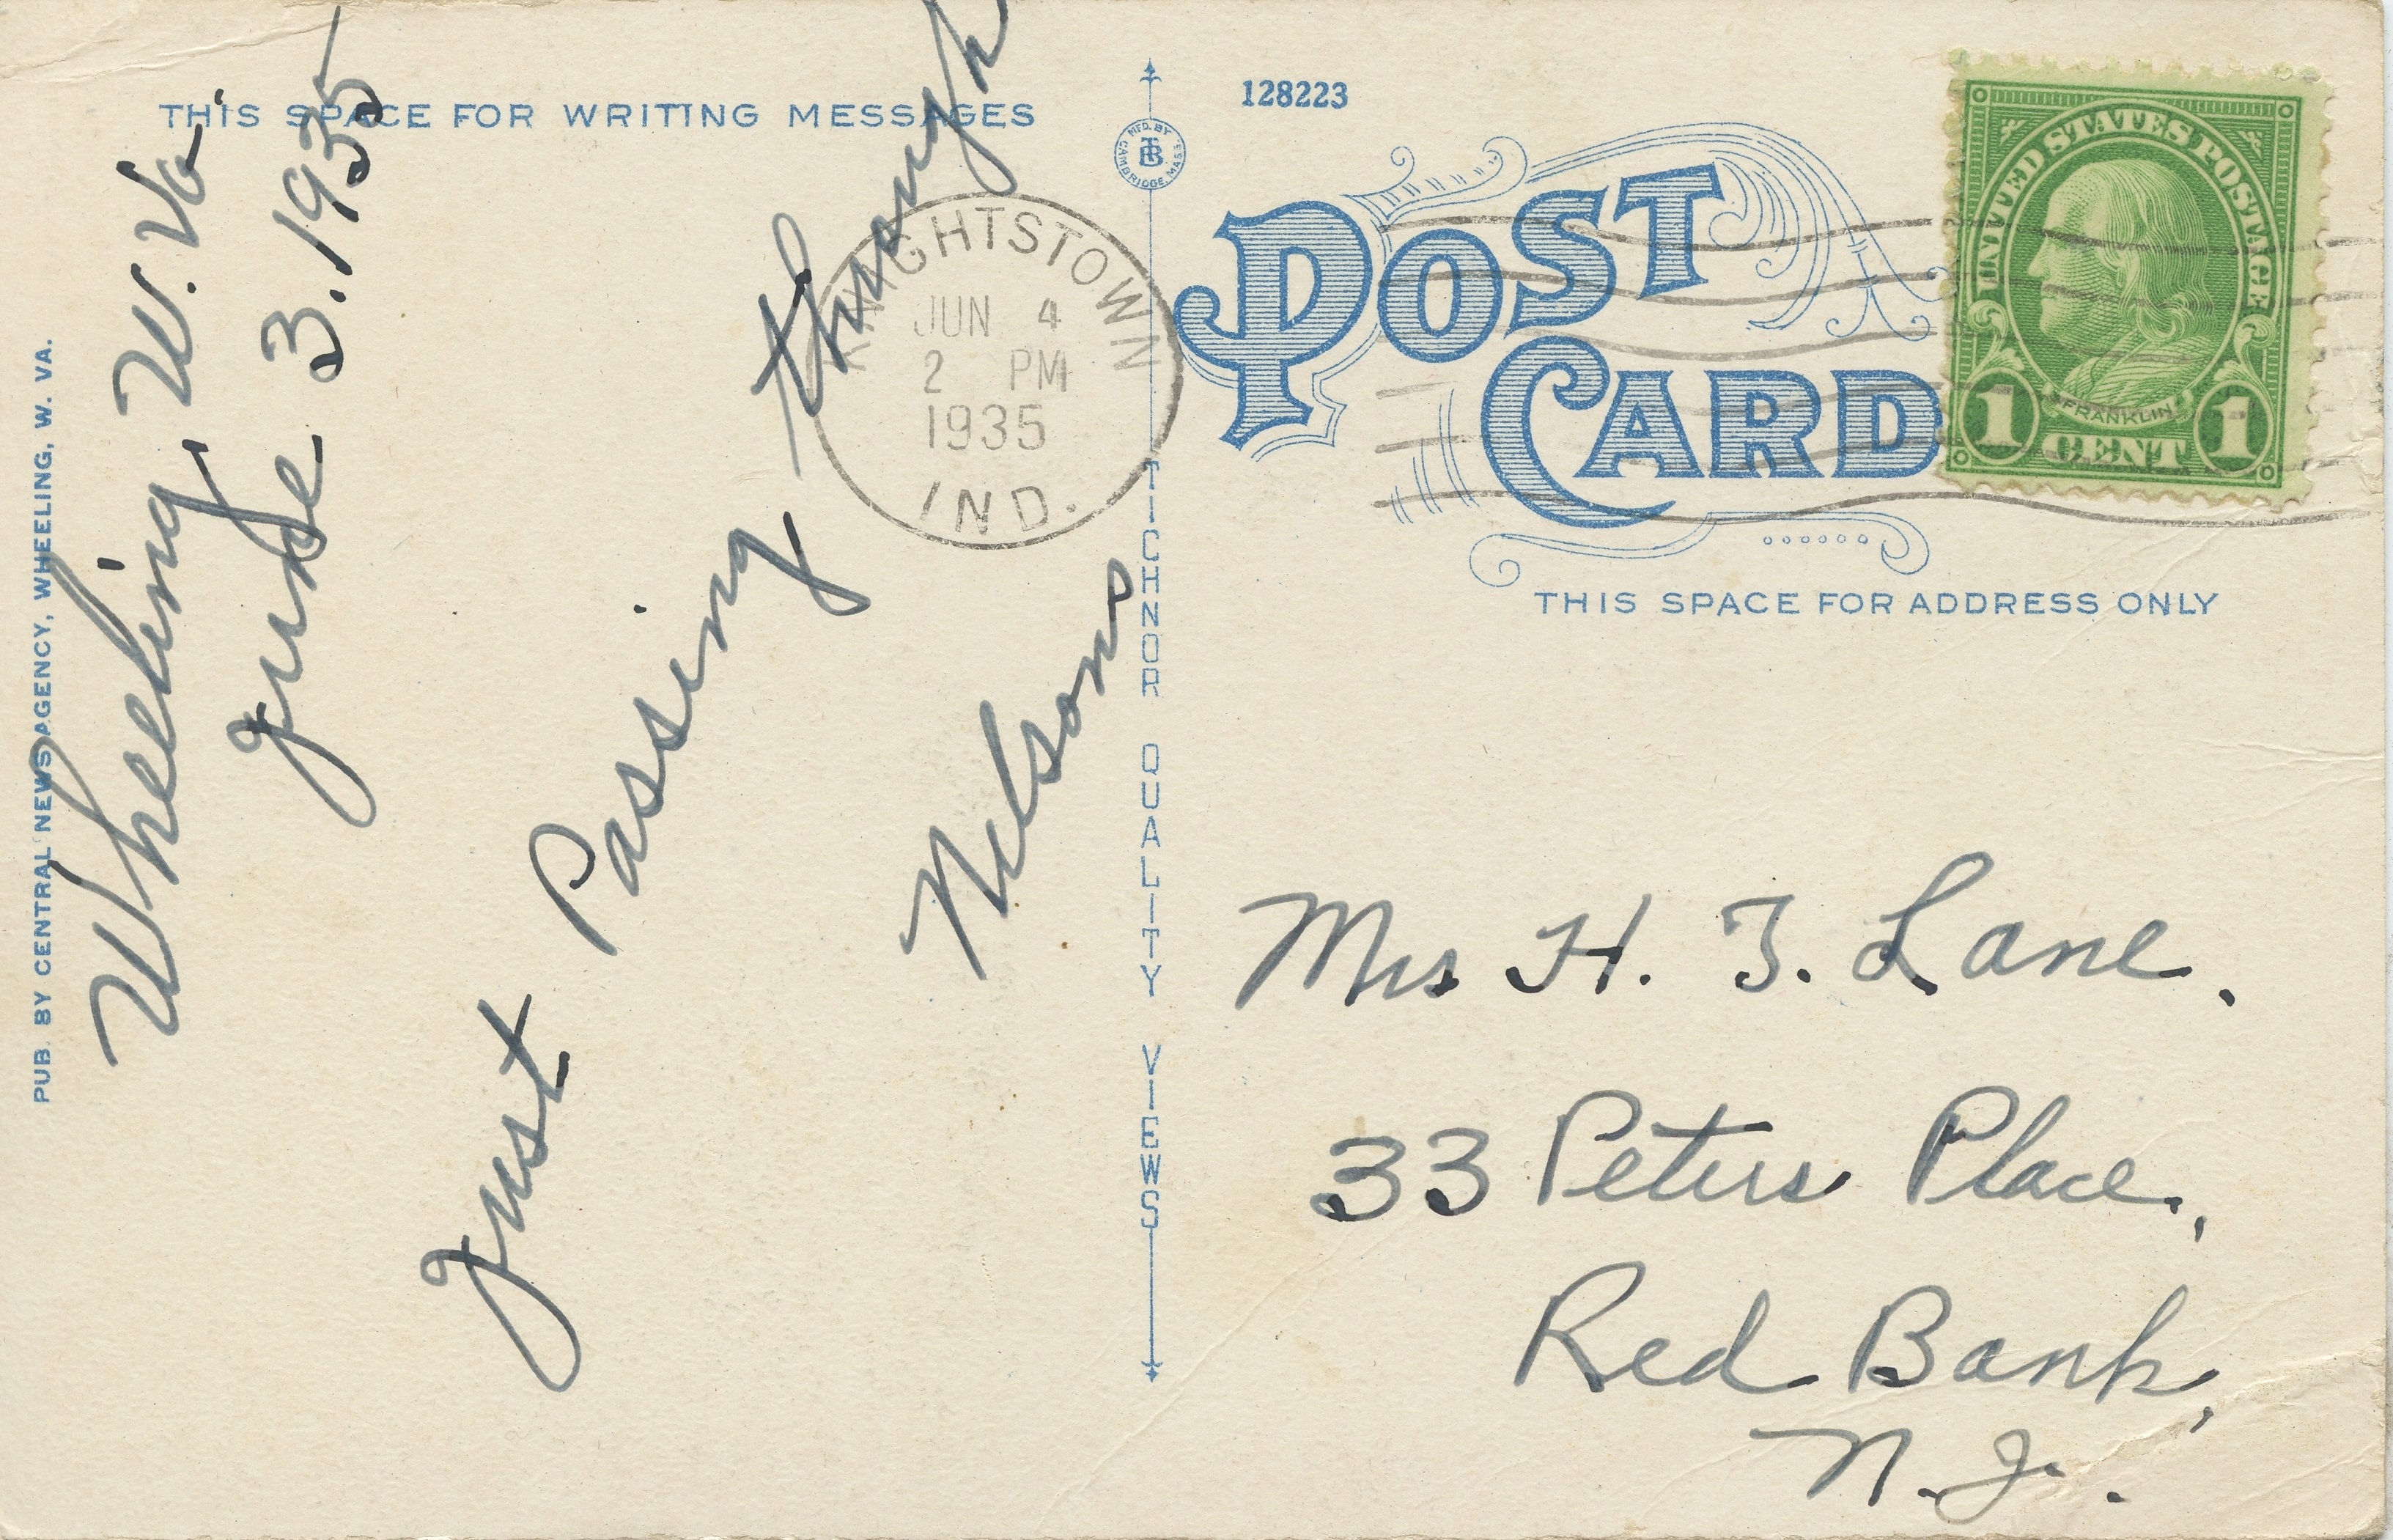 THIS SPACE FOR WRITING MESSAGES
Wheeling, W. Va.
June 3. 1935
Just Passing through
Nelsons
PUB. BY CENTRAL NEWS AGENCY, WHEELING, W. VA.
KNIGHTSTOWN
JUN 4
2 PM
1935
IND.
MFD. BY
TB
CAMBRIDGE, MASS.
TICHNOR QUALITY VIEWS
128223
POST
CARD
UNITED STATES POSTAGE
FRANKLIN
1 CENT 1
THIS SPACE FOR ADDRESS ONLY
Mrs H. T. Lane.
33 Peters Place,
Red Bank,
N. J.